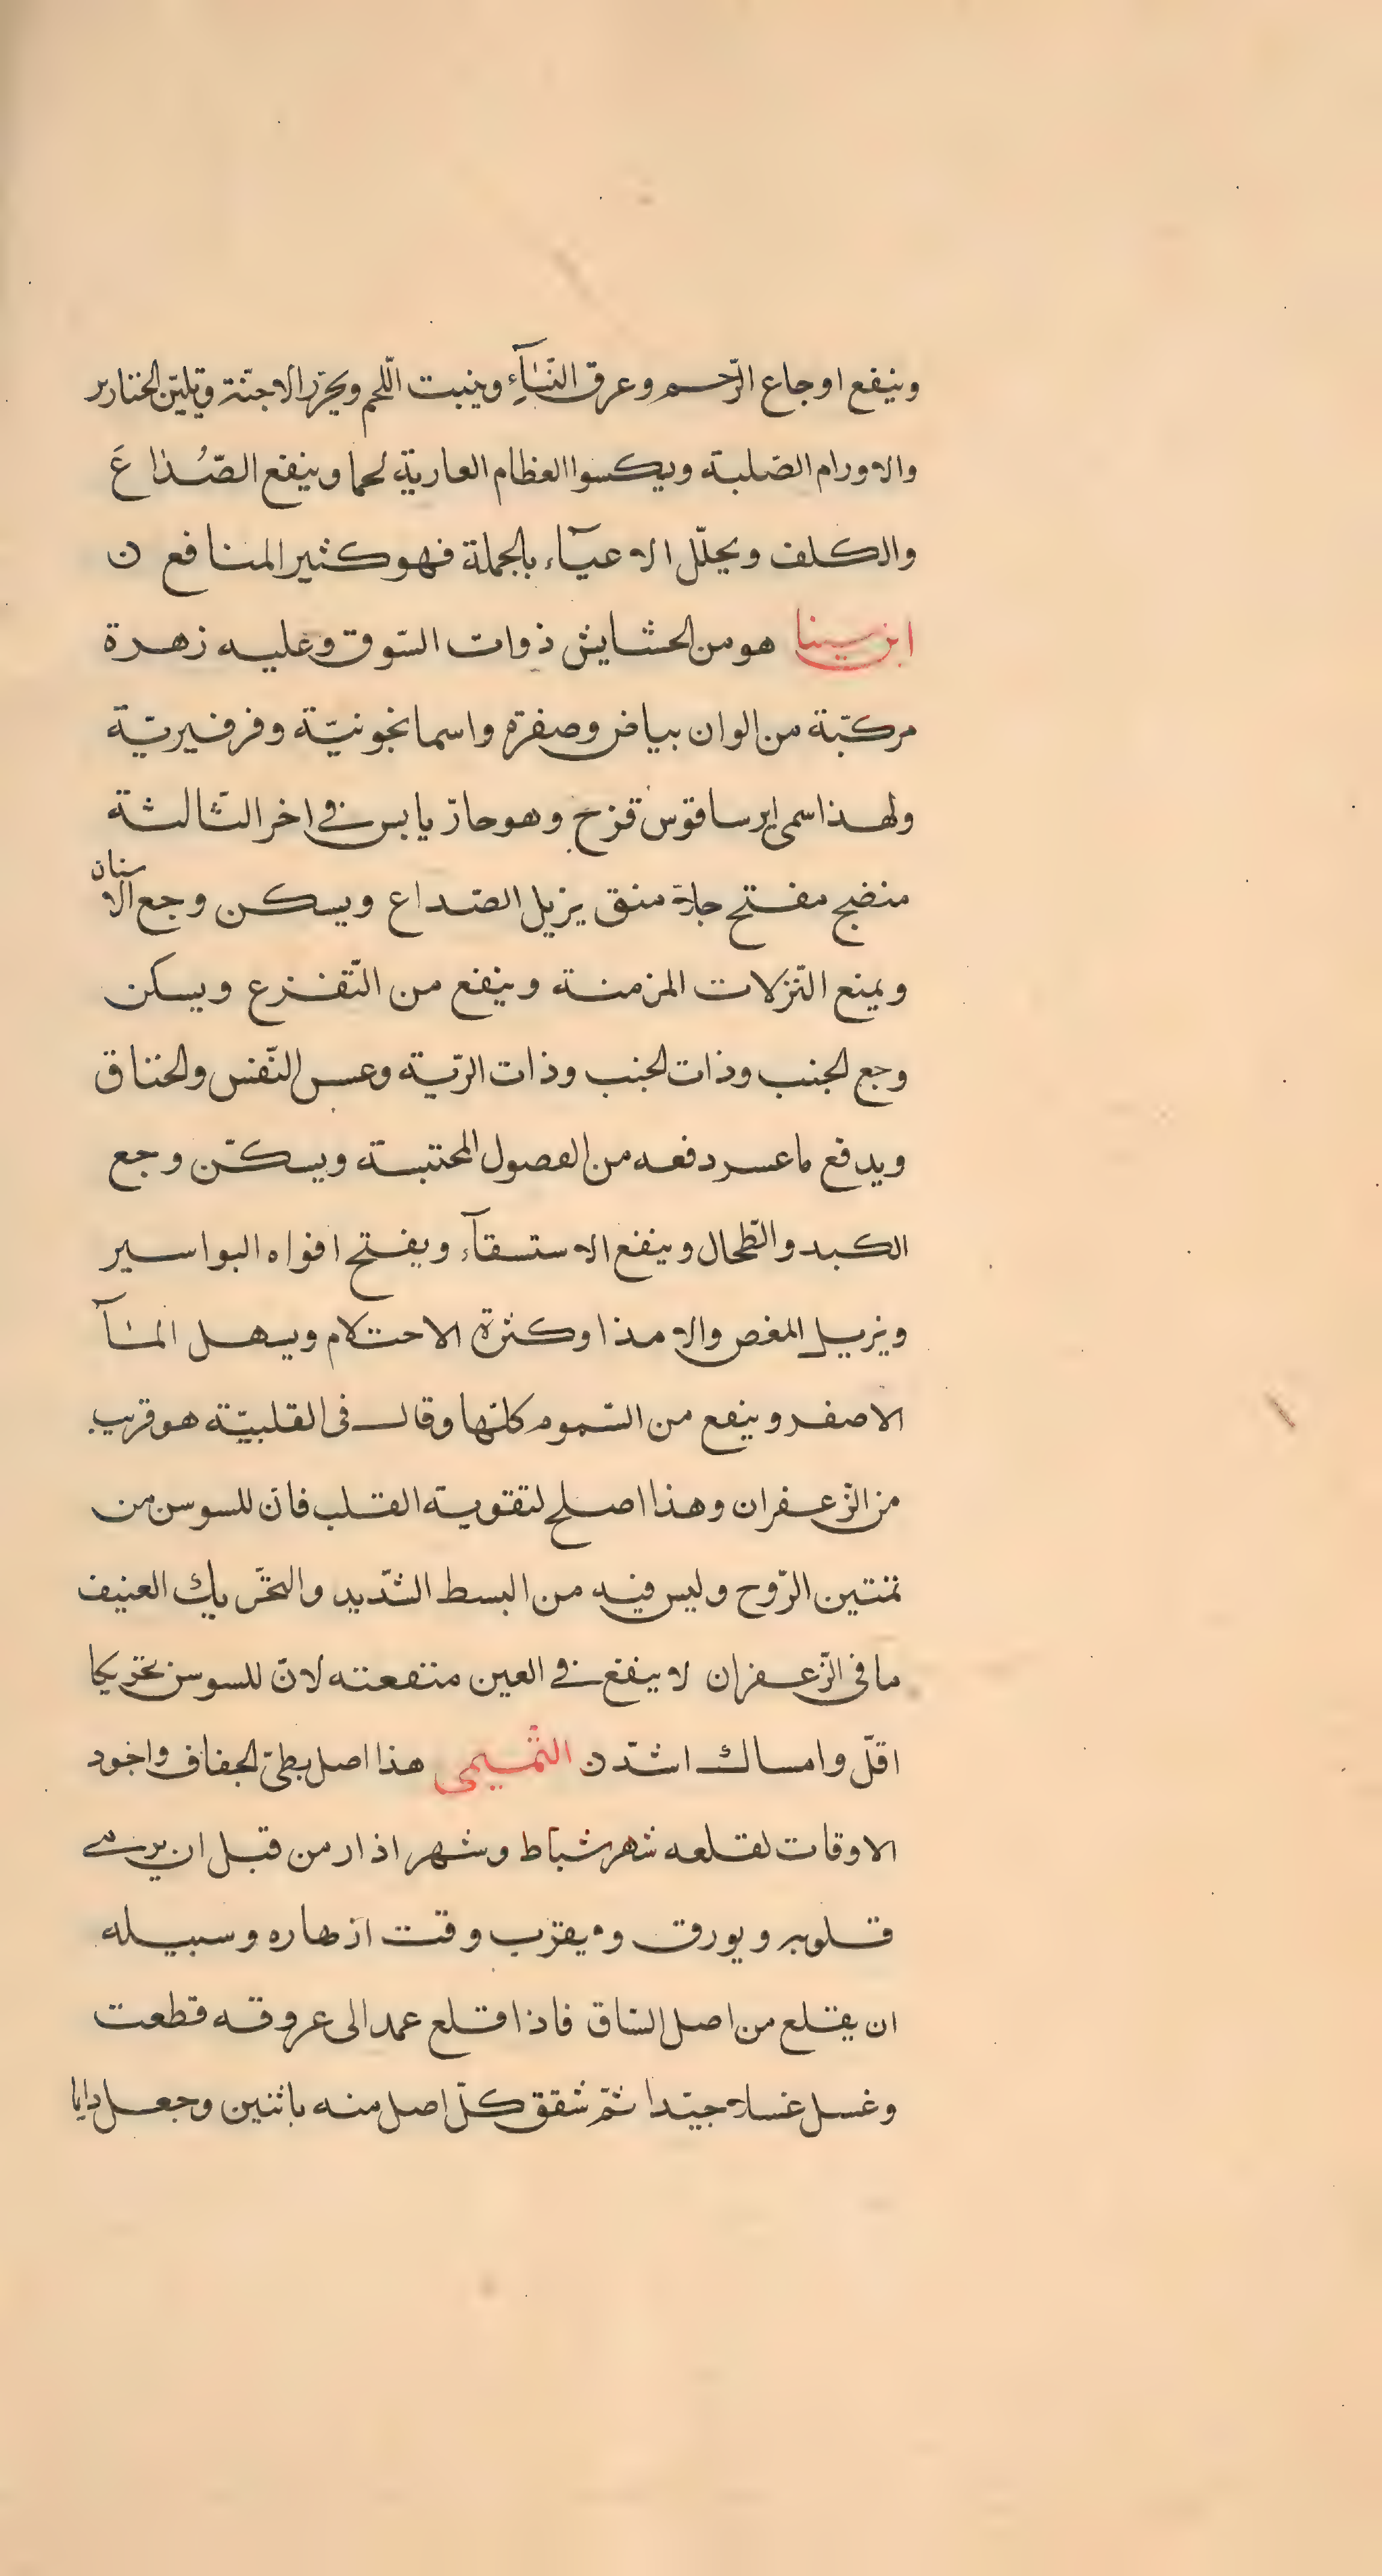 وينفع اوجاع الرّحم وعرق النّسَآءِ وينبت اللّحم ويحرّر الاجنّة ويليّن الخنازير
والاورام الصّلبة ويكسوا العظام العارية لحما وينفع الصُّدَاعَ
والكلف ويحلّل الاعيآء بالجملة فهو كثير المنافع ن
ابن سينا هو من الحشايش ذوات السّوق وعليه زهرة
مركّبة من الوان بياض وصفرة واسمانجونيّة وفرفيريّة
ولهذا سمى ايرسا قوس قزح وهو حارّ يابس في اخر الثّالثة
منضج مفتح جلاء منق يزيل الصّداع ويسكن وجع الاسنان
ويمنع النّزلات المزمنة وينفع من التّفزع ويسكن
وجع الجنب وذات الجنب وذات الرّية وعسر النّفس والخناق
ويدفع ما عسر دفعه من الفصول المحتبسة ويسكّن وجع
الكبد والطّحال وينفع الاستسقآء ويفتح افواه البواسير
ويزيل المغص والامذا وكثرة الاحتلام ويسهل المآ
الاصفر وينفع من السّموم كلّها وقال في القلبيّة هو قريب
من الزّعفران وهذا اصلح لتقوية القلب فانّ للسوسن من
تمتين الرّوح وليس فيه من البسط الشّديد والتحّريك العنيف
ما في الزّعفران لا ينفع في العين منفعته لانّ للسوسن تحريكا
اقلّ وامساك اشدّ ن التّميمى هذا اصل بطئ الجفاف واجود
الاوقات لقلعه شهر شباط وشهر اذار من قبل ان يرسى
قلوبه ويورق ويقرب وقت ازهاره وسبيله
ان يقلع من اصل السّاق فاذا قلع عمد الى عروقه قطعت
وغسل غسلا جيّدا ثمّ شقق كلّ اصل منه باثنين وجعل